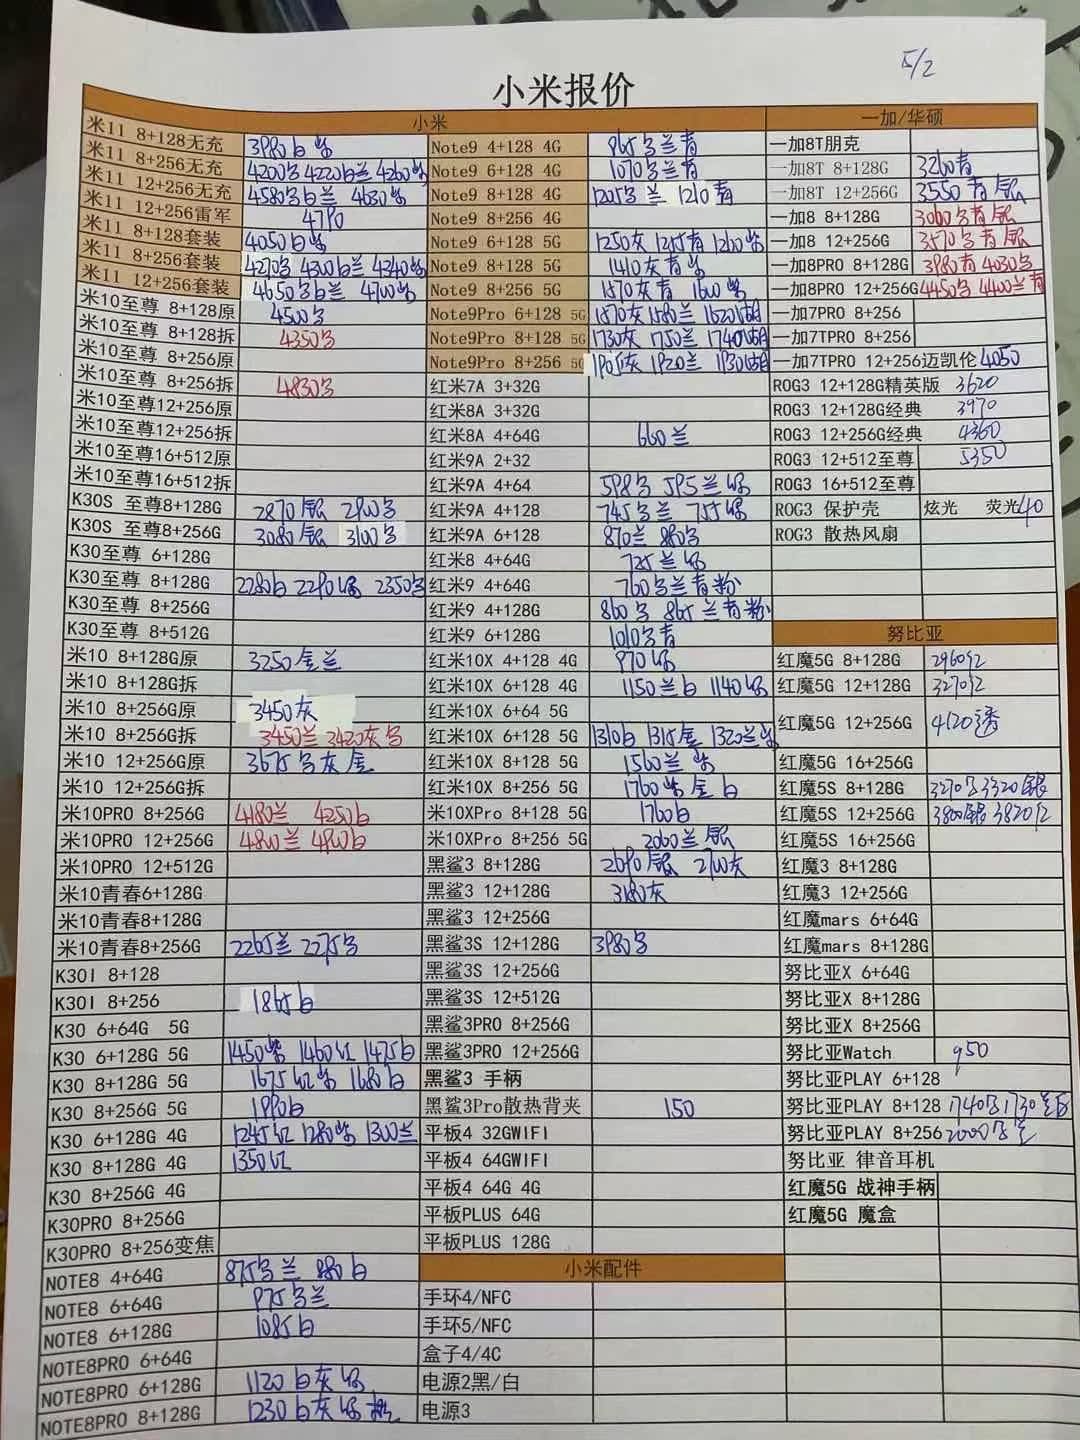 5/2
小米报价
小米
一加/华硕
米11 8+128无充 3980白紫 Note9 4+128 4G 965乌兰青 一加8T朋克
米11 8+256无充 4200乌 4220白兰 4260紫 Note9 6+128 4G 1070乌兰青 一加8T 8+128G 3260青
米11 12+256无充 4580乌白兰 4630紫 Note9 8+128 4G 1205乌兰 1210青 一加8T 12+256G 3550青银
米11 12+256雷军 4790 Note9 8+256 4G 一加8 8+128G 3060乌青银
米11 8+128套装 4050白紫 Note9 6+128 5G 1250灰 1255青 1260紫 一加8 12+256G 3570乌青银
米11 8+256套装 4270乌 4300白兰 4340紫 Note9 8+128 5G 1410灰青紫 一加8PRO 8+128G 3980青 4030乌
米11 12+256套装 4650乌白兰 4700紫 Note9 8+256 5G 1570灰青 1600紫 一加8PRO 12+256G 4450乌 4400兰青
米10至尊 8+128原 4500乌 Note9Pro 6+128 5G 1570灰 1580兰 1620湖 一加7PRO 8+256
米10至尊 8+128拆 4350乌 Note9Pro 8+128 5G 1730灰 1750兰 1740湖 一加7TPRO 8+256
米10至尊 8+256原 Note9Pro 8+256 5G 1905灰 1920兰 1930湖 一加7TPRO 12+256迈凯伦 4050
米10至尊 8+256拆 4830乌 红米7A 3+32G ROG3 12+128G精英版 3620
米10至尊12+256原 红米8A 3+32G ROG3 12+128G经典 3970
米10至尊12+256拆 红米8A 4+64G 660兰 ROG3 12+256G经典 4360
米10至尊16+512原 红米9A 2+32 ROG3 12+512至尊 5350
米10至尊16+512拆 红米9A 4+64 598乌 595兰绿 ROG3 16+512至尊
K30S 至尊8+128G 2870银 2900乌 红米9A 4+128 745乌兰 755绿 ROG3 保护壳 炫光 荧光40
K30S 至尊8+256G 3080银 3100乌 红米9A 6+128 870兰 880乌 ROG3 散热风扇
K30至尊 6+128G 红米8 4+64G 725兰绿
K30至尊 8+128G 2280白 2290绿 2350乌 红米9 4+64G 760乌兰青粉
K30至尊 8+256G 红米9 4+128G 860乌 865兰青粉
K30至尊 8+512G 红米9 6+128G 1010乌青 努比亚
米10 8+128G原 3250金兰 红米10X 4+128 4G 970绿 红魔5G 8+128G 2960红
米10 8+128G拆 红米10X 6+128 4G 1150兰白 1140绿 红魔5G 12+128G 3270红
米10 8+256G原 3450灰 红米10X 6+64 5G 红魔5G 12+256G 4120透
米10 8+256G拆 3450兰 3420灰乌 红米10X 6+128 5G 1310白 1315金 1320兰紫
米10 12+256G原 3675乌灰金 红米10X 8+128 5G 1560兰紫 红魔5G 16+256G
米10 12+256G拆 红米10X 8+256 5G 1760紫金白 红魔5S 8+128G 3270乌 3320银
米10PRO 8+256G 4180兰 4250白 米10XPro 8+128 5G 1760白 红魔5S 12+256G 3800银 3820红
米10PRO 12+256G 4800兰 4900白 米10XPro 8+256 5G 2060兰银 红魔5S 16+256G
米10PRO 12+512G 黑鲨3 8+128G 2690银 2700灰 红魔3 8+128G
米10青春6+128G 黑鲨3 12+128G 3180灰 红魔3 12+256G
米10青春8+128G 黑鲨3 12+256G 红魔mars 6+64G
米10青春8+256G 2265兰 2275乌 黑鲨3S 12+128G 3980乌 红魔mars 8+128G
K30I 8+128 黑鲨3S 12+256G 努比亚X 6+64G
K30I 8+256 1865白 黑鲨3S 12+512G 努比亚X 8+128G
K30 6+64G 5G 黑鲨3PRO 8+256G 努比亚X 8+256G
K30 6+128G 5G 1450紫 1460红 1475白 黑鲨3PRO 12+256G 努比亚Watch 950
K30 8+128G 5G 1675红紫 1680白 黑鲨3 手柄 努比亚PLAY 6+128
K30 8+256G 5G 1990白 黑鲨3Pro散热背夹 150 努比亚PLAY 8+128 1740乌 1730兰白
K30 6+128G 4G 1245红 1280紫 1300兰 平板4 32GWIFI 努比亚PLAY 8+256 2000乌兰
K30 8+128G 4G 1350红 平板4 64GWIFI 努比亚 律音耳机
K30 8+256G 4G 平板4 64G 4G 红魔5G 战神手柄
K30PRO 8+256G 平板PLUS 64G 红魔5G 魔盒
K30PRO 8+256变焦 平板PLUS 128G
NOTE8 4+64G 875乌兰 880白 小米配件
NOTE8 6+64G 975乌兰 手环4/NFC
NOTE8 6+128G 1085白 手环5/NFC
NOTE8PRO 6+64G 盒子4/4C
NOTE8PRO 6+128G 1120白灰绿 电源2黑/白
NOTE8PRO 8+128G 1230白灰绿 电源3